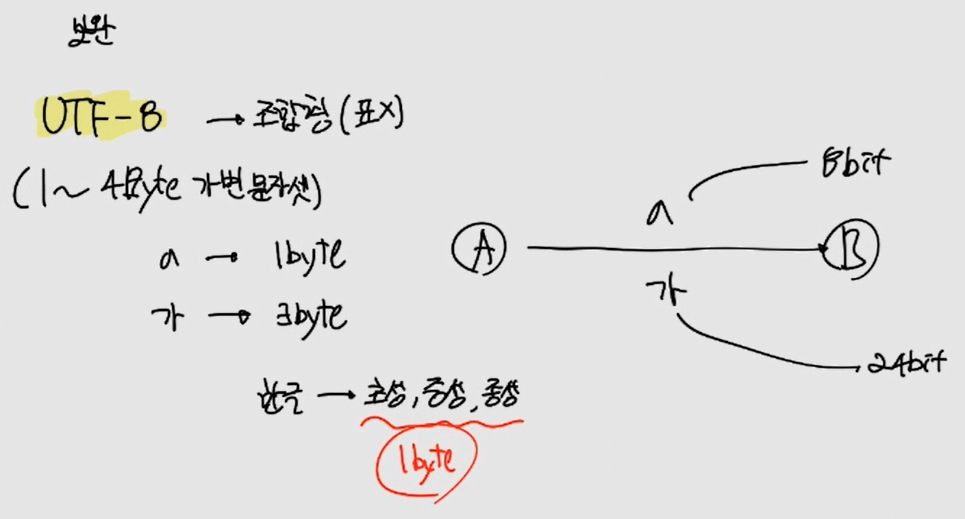 보완
UTF-8 → 조합형 (표X)
(1~4Byte 가변문자셋)
a → 1byte
가 → 3byte
한글 → 초성, 중성, 종성
1byte
A
a
8bit
B
가
24bit